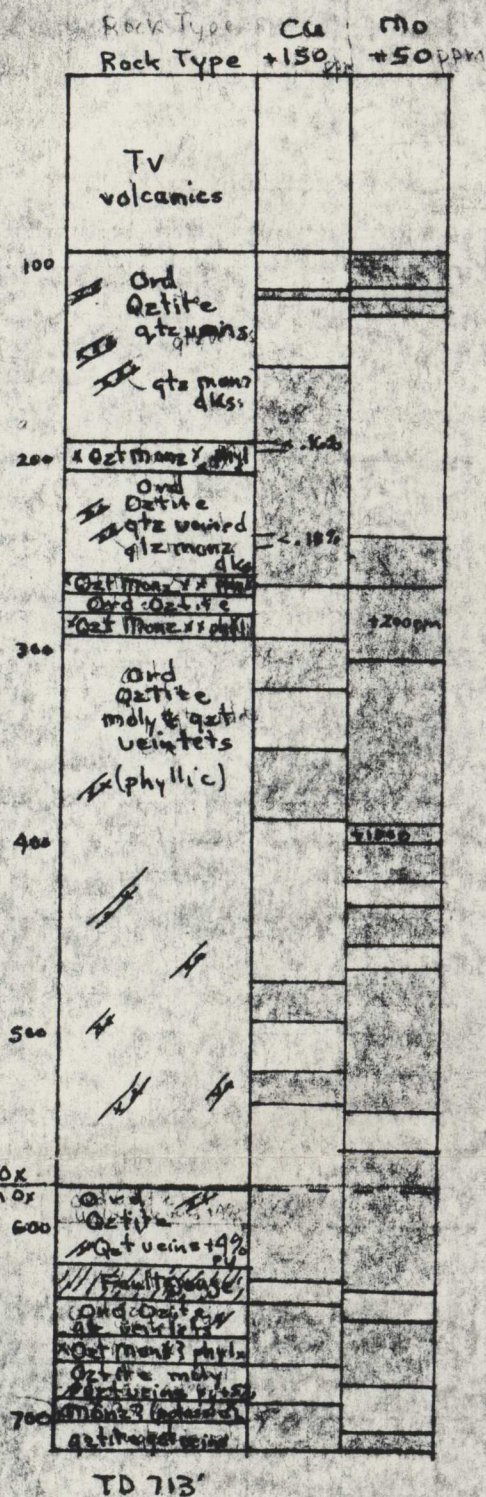 Rock Type Cu Mo
Rock Type +150 ppm +50 ppm
TV
volcanics
100
Ord
Qztite
qtz veins
qtz monz
dks
200
x Qzt Monz x phyl
Ord
Qztite
qtz veined
qtz monz
dks
< .18%
x Qzt Monz x x phyl
Ord Qztite
x Qzt Monz x x phyl
+200 ppm
300
Ord
Qztite
moly & qzt
veinlets
(phyllic)
400
+1000
500
OX
Ord
Qztite
600
Qzt veins +4%
py
Fault gouge
Ord Qztite
qtz veinlets
x Qzt Monz? phyl x
Qztite moly
700
TD 713'